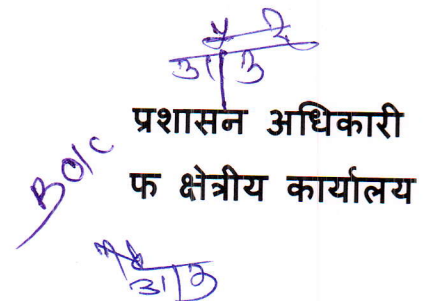 प्रशासन अधिकारी
फ क्षेत्रीय कार्यालय
BO/C